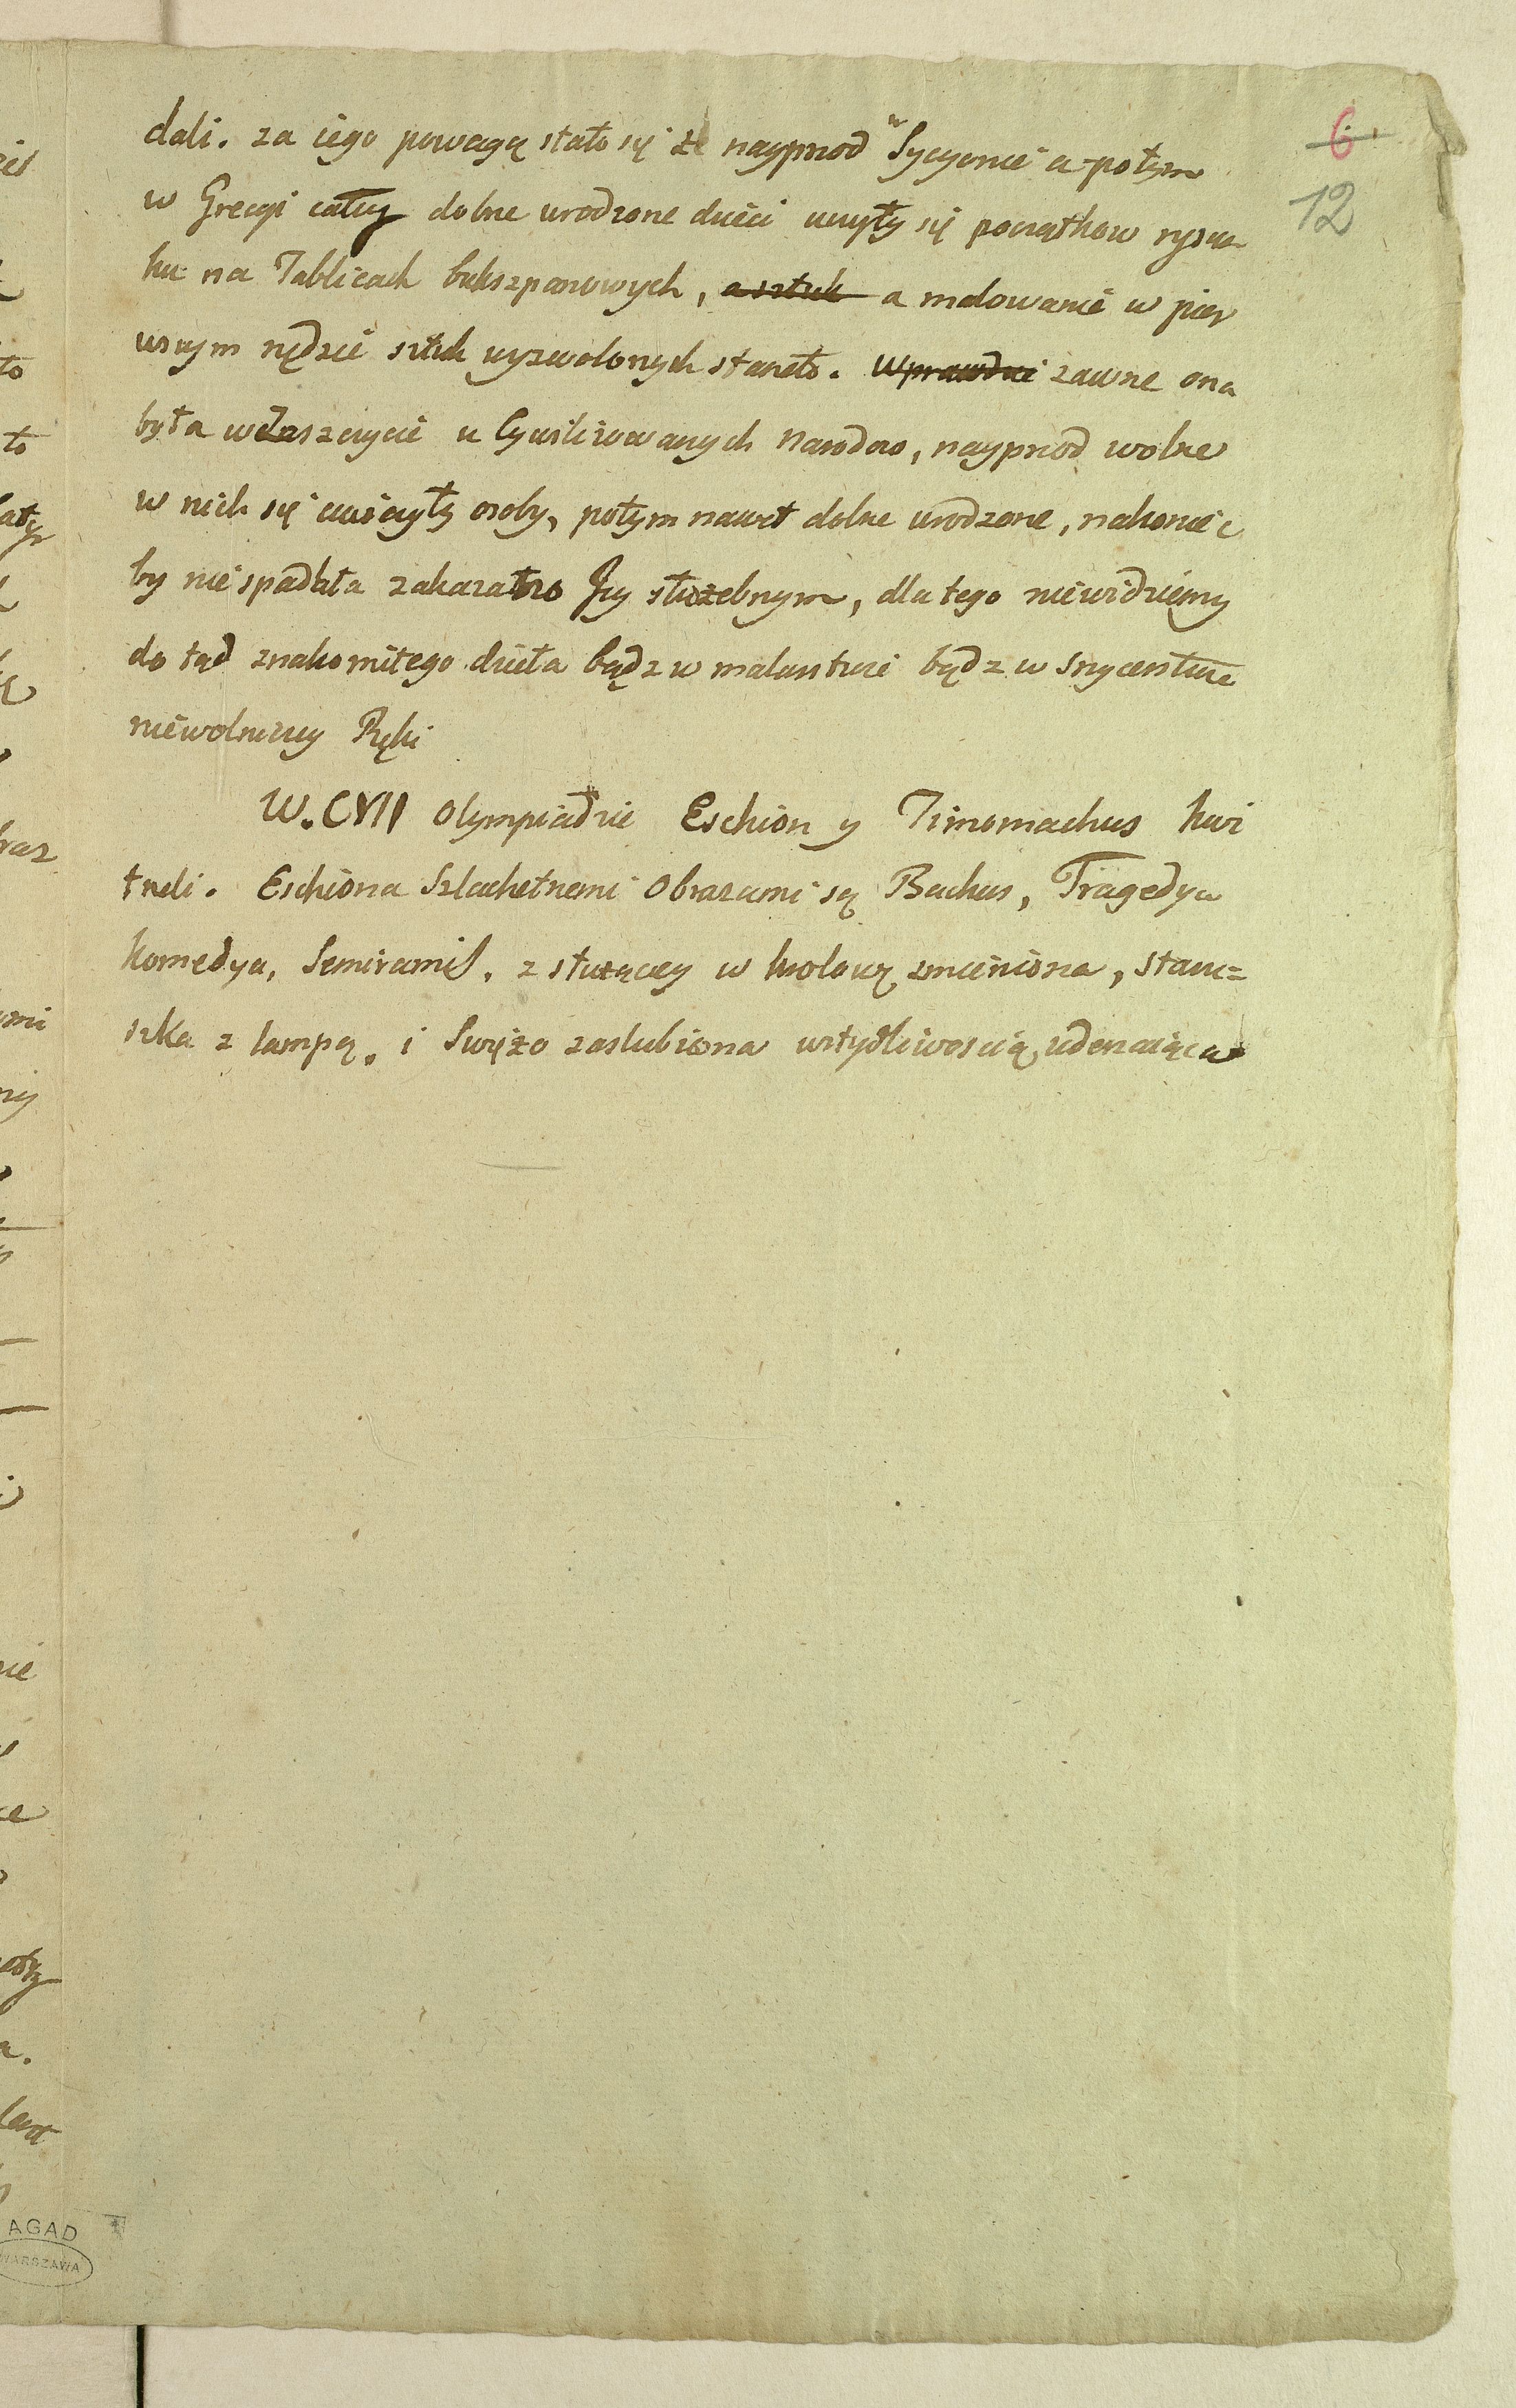 6
12
dali. za iego powagą stało się że nayprzod w Sycyonie a potym
w Grecyi całey dobrze urodzone dzieci uczyły się początkow rysun
ku na Tablicach bukszpanowych, a sztuk a malowanie w pier
wszym rzędzie sztuk wyzwolonych staneło. Wprawdzie zawsze ona
była w zaszczycie u Cywilizowanych Narodow, nayprzod wolne
w nich się cwiczyły osoby, potym nawet dobrze urodzone, nakoniec
by nie spadała zakazano Jey służebnym, dla tego niewidziemy
do tąd znakomitego dzieła bądz w malarstwie bądz w Snycerstwie
niewolniczey Ręki
W. CVII Olympiadzie Eschion y Timomachus kwi
tneli. Eschiona Szlachetnemi Obrazami są Bachus, Tragedya
komedya, Semiramis, z służącey w krolowę zmieniona, staru=
szka z lampą, i Swięžo zaslubiona wstydliwoscią uderzaiąca
AGAD
WARSZAWA